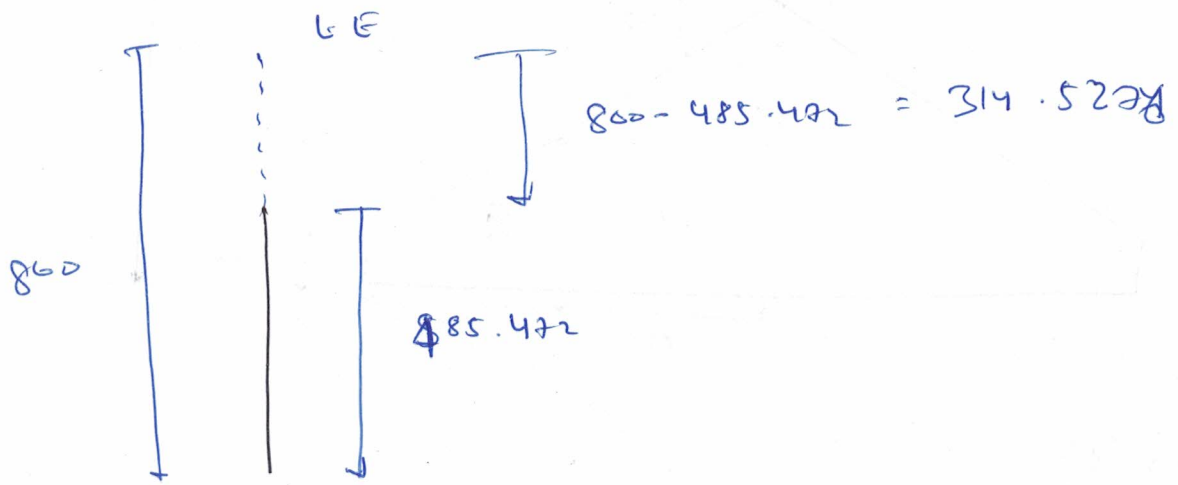 LE
800 - 485.472 = 314.528
800
485.472